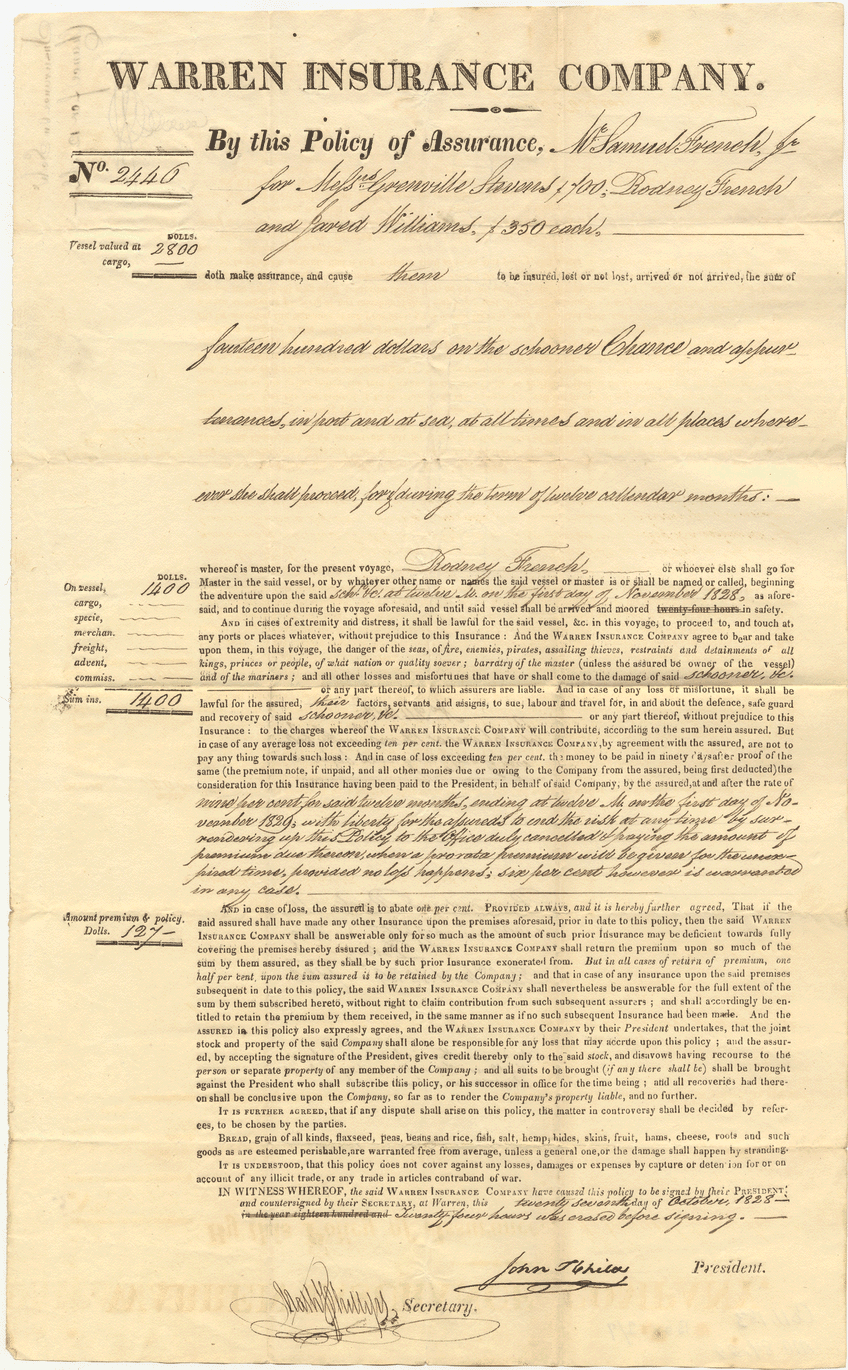 WARREN INSURANCE COMPANY.
By this Policy of Assurance, Mr Samuel French, Jr
No. 2446
for Messrs Grenville Stevens $700, Rodney French
and Jared Williams, $350 each,
DOLLS.
Vessel valued at 2800
cargo,
doth make assurance, and cause them to be insured, lost or not lost, arrived or not arrived, the sum of
fourteen hundred dollars on the schooner Chance and appur-
tenances, in port and at sea, at all times and in all places where-
ever she shall proceed, for & during the term of twelve callendar months: —
whereof is master, for the present voyage, Rodney French, or whoever else shall go for
DOLLS.
On vessel, 1400
cargo,
specie,
merchan.
freight,
advent,
commiss.
Sum ins. 1400
Master in the said vessel, or by whatever other name or names the said vessel or master is or shall be named or called, beginning
the adventure upon the said schr. &c. at twelve M. on the first day of November 1828, as afore-
said, and to continue during the voyage aforesaid, and until said vessel shall be arrived and moored twenty-four hours in safety.
AND in cases of extremity and distress, it shall be lawful for the said vessel, &c. in this voyage, to proceed to, and touch at,
any ports or places whatever, without prejudice to this Insurance: And the WARREN INSURANCE COMPANY agree to bear and take
upon them, in this voyage, the danger of the seas, of fire, enemies, pirates, assailing thieves, restraints and detainments of all
kings, princes or people, of what nation or quality soever; barratry of the master (unless the assured be owner of the vessel)
and of the mariners; and all other losses and misfortunes that have or shall come to the damage of said schooner, &c.
or any part thereof, to which assurers are liable. And in case of any loss or misfortune, it shall be
lawful for the assured, their factors, servants and assigns, to sue, labour and travel for, in and about the defence, safe guard
and recovery of said schooner, &c. or any part thereof, without prejudice to this
Insurance: to the charges whereof the WARREN INSURANCE COMPANY will contribute, according to the sum herein assured. But
in case of any average loss not exceeding ten per cent. the WARREN INSURANCE COMPANY, by agreement with the assured, are not to
pay any thing towards such loss: And in case of loss exceeding ten per cent. the money to be paid in ninety days after proof of the
same (the premium note, if unpaid, and all other monies due or owing to the Company from the assured, being first deducted) the
consideration for this Insurance having been paid to the President, in behalf of said Company, by the assured, at and after the rate of
nine per cent, for said twelve months, ending at twelve M. on the first day of No-
vember 1829; with liberty for the assureds to end the risk at any time by sur-
rendering up this Policy to the Office duly cancelled & paying the amount of
premium due thereon, when a pro rata premium will be given for the unex-
pired time, provided no loss happens; six per cent however is warranted
in any case.
Amount premium & policy.
Dolls. 127—
AND in case of loss, the assured is to abate one per cent. PROVIDED ALWAYS, and it is hereby further agreed, That if the
said assured shall have made any other Insurance upon the premises aforesaid, prior in date to this policy, then the said WARREN
INSURANCE COMPANY shall be answerable only for so much as the amount of such prior Insurance may be deficient towards fully
covering the premises hereby assured; and the WARREN INSURANCE COMPANY shall return the premium upon so much of the
sum by them assured, as they shall be by such prior Insurance exonerated from. But in all cases of return of premium, one
half per cent. upon the sum assured is to be retained by the Company; and that in case of any insurance upon the said premises
subsequent in date to this policy, the said WARREN INSURANCE COMPANY shall nevertheless be answerable for the full extent of the
sum by them subscribed hereto, without right to claim contribution from such subsequent assurers; and shall accordingly be en-
titled to retain the premium by them received, in the same manner as if no such subsequent Insurance had been made. And the
ASSURED in this policy also expressly agrees, and the WARREN INSURANCE COMPANY by their President undertakes, that the joint
stock and property of the said Company shall alone be responsible for any loss that may accrue upon this policy; and the assur-
ed, by accepting the signature of the President, gives credit thereby only to the said stock, and disavows having recourse to the
person or separate property of any member of the Company; and all suits to be brought (if any there shall be) shall be brought
against the President who shall subscribe this policy, or his successor in office for the time being; and all recoveries had there-
on shall be conclusive upon the Company, so far as to render the Company's property liable, and no further.
IT IS FURTHER AGREED, that if any dispute shall arise on this policy, the matter in controversy shall be decided by refer-
ees, to be chosen by the parties.
BREAD, grain of all kinds, flaxseed, peas, beans and rice, fish, salt, hemp, hides, skins, fruit, hams, cheese, roots and such
goods as are esteemed perishable, are warranted free from average, unless a general one, or the damage shall happen by stranding.
IT IS UNDERSTOOD, that this policy does not cover against any losses, damages or expenses by capture or detention for or on
account of any illicit trade, or any trade in articles contraband of war.
IN WITNESS WHEREOF, the said WARREN INSURANCE COMPANY have caused this policy to be signed by their PRESIDENT,
and countersigned by their SECRETARY, at Warren, this twenty seventh day of October, 1828—
in the year eighteen hundred and Twenty four hours was erased before signing. —
John T Child President.
Nathl Phillips Secretary.